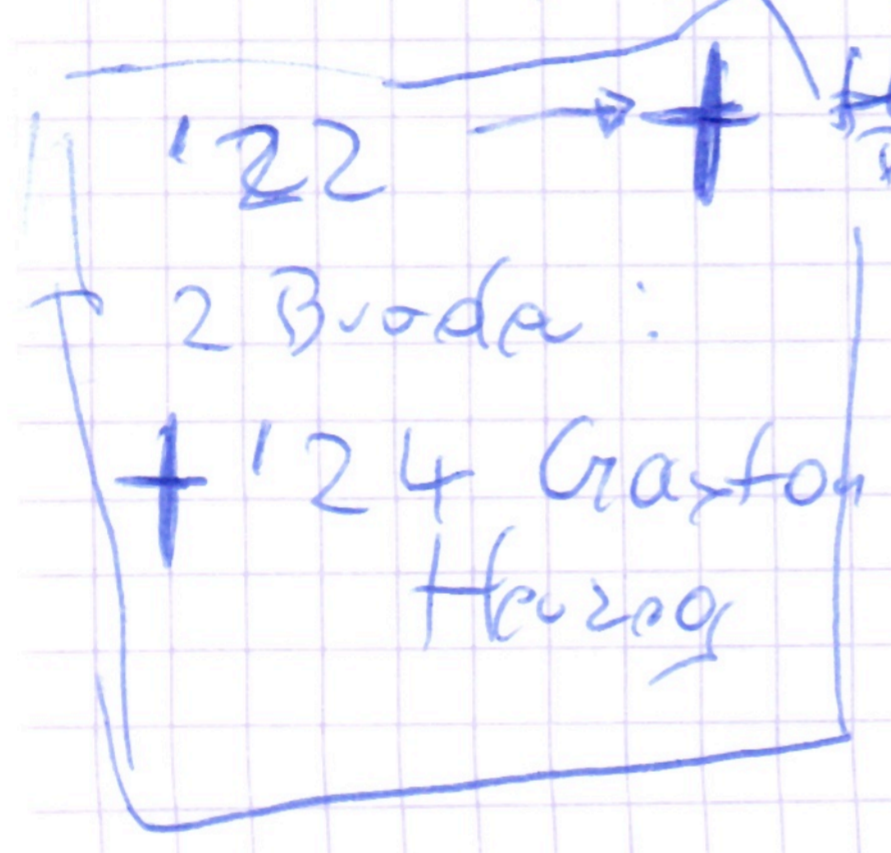 '22 → +
2 Bruder:
+ '24 Gaston
Herzog